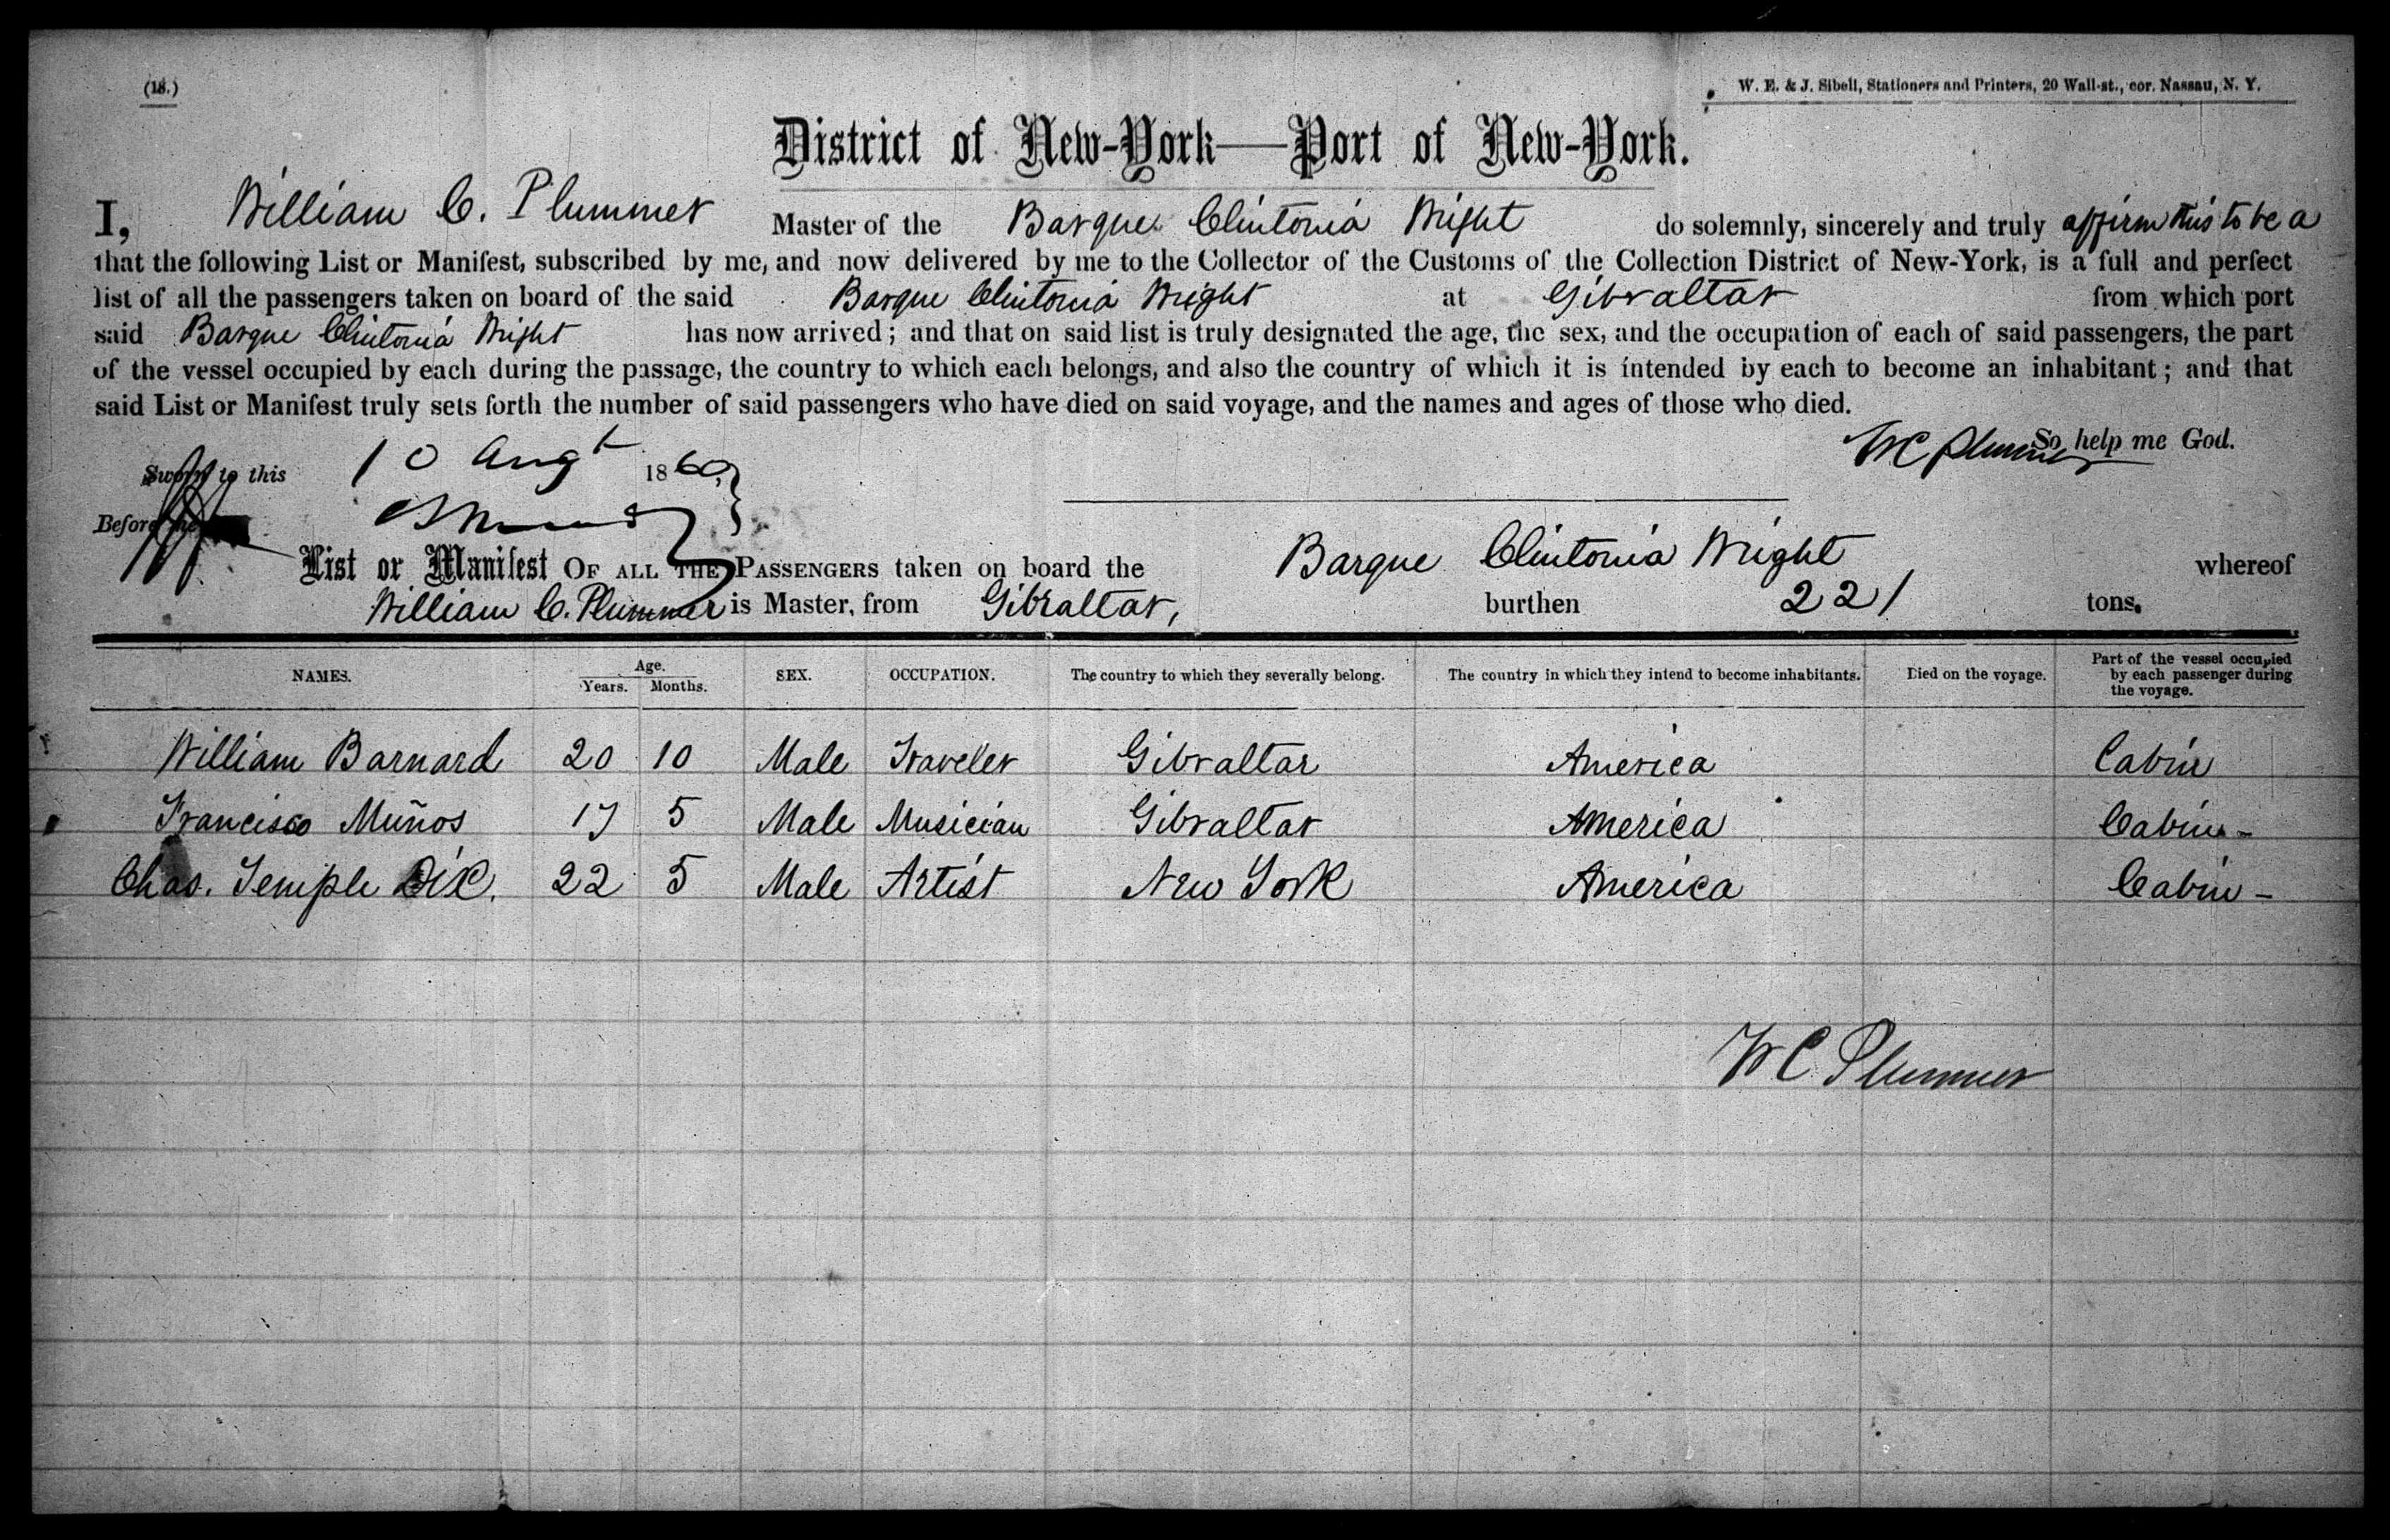 (18.)
W. E. & J. Sibell, Stationers and Printers, 20 Wall-st., cor. Nassau, N. Y.
District of New-York—Port of New-York.
I, William C. Plummer Master of the Barque Clintonia Wright do solemnly, sincerely and truly affirm this to be a
that the following List or Manifest, subscribed by me, and now delivered by me to the Collector of the Customs of the Collection District of New-York, is a full and perfect
list of all the passengers taken on board of the said Barque Clintonia Wright at Gibraltar from which port
said Barque Clintonia Wright has now arrived; and that on said list is truly designated the age, the sex, and the occupation of each of said passengers, the part
of the vessel occupied by each during the passage, the country to which each belongs, and also the country of which it is intended by each to become an inhabitant; and that
said List or Manifest truly sets forth the number of said passengers who have died on said voyage, and the names and ages of those who died.
W C Plummer So help me God.
Sworn to this 10 Augt 1860,
Before me
List or Manifest OF ALL THE PASSENGERS taken on board the Barque Clintonia Wright whereof
William C. Plummer is Master, from Gibraltar, burthen 221 tons.
NAMES. Age. Years. Months. SEX. OCCUPATION. The country to which they severally belong. The country in which they intend to become inhabitants. Died on the voyage. Part of the vessel occupied by each passenger during the voyage.
William Barnard 20 10 Male Traveler Gibraltar America Cabin
Francisco Muños 17 5 Male Musician Gibraltar America Cabin -
Chas. Temple Dix. 22 5 Male Artist New York America Cabin -
W C Plummer